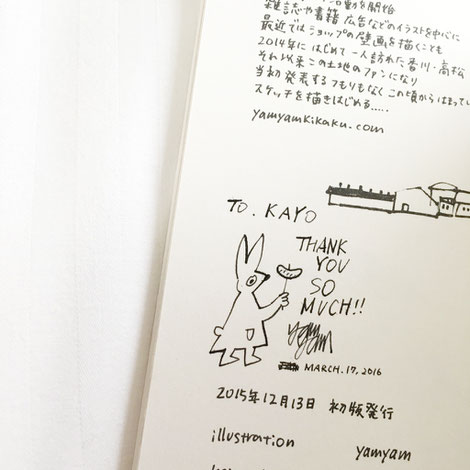 活動を開始
雑誌や書籍 広告などのイラストを中心に
最近ではショップの壁画を描くことも
2014年に はじめて一人訪れた香川・高松
それ以来この土地のファンになり
当初発表するつもりもなく この頃からはまってい
スケッチを描きはじめる.....
yamyamkikaku.com
TO. KAYO
THANK
YOU
SO
MUCH!!
yamyam
MARCH.17,2016
2015年12月13日 初版発行
illustration yamyam